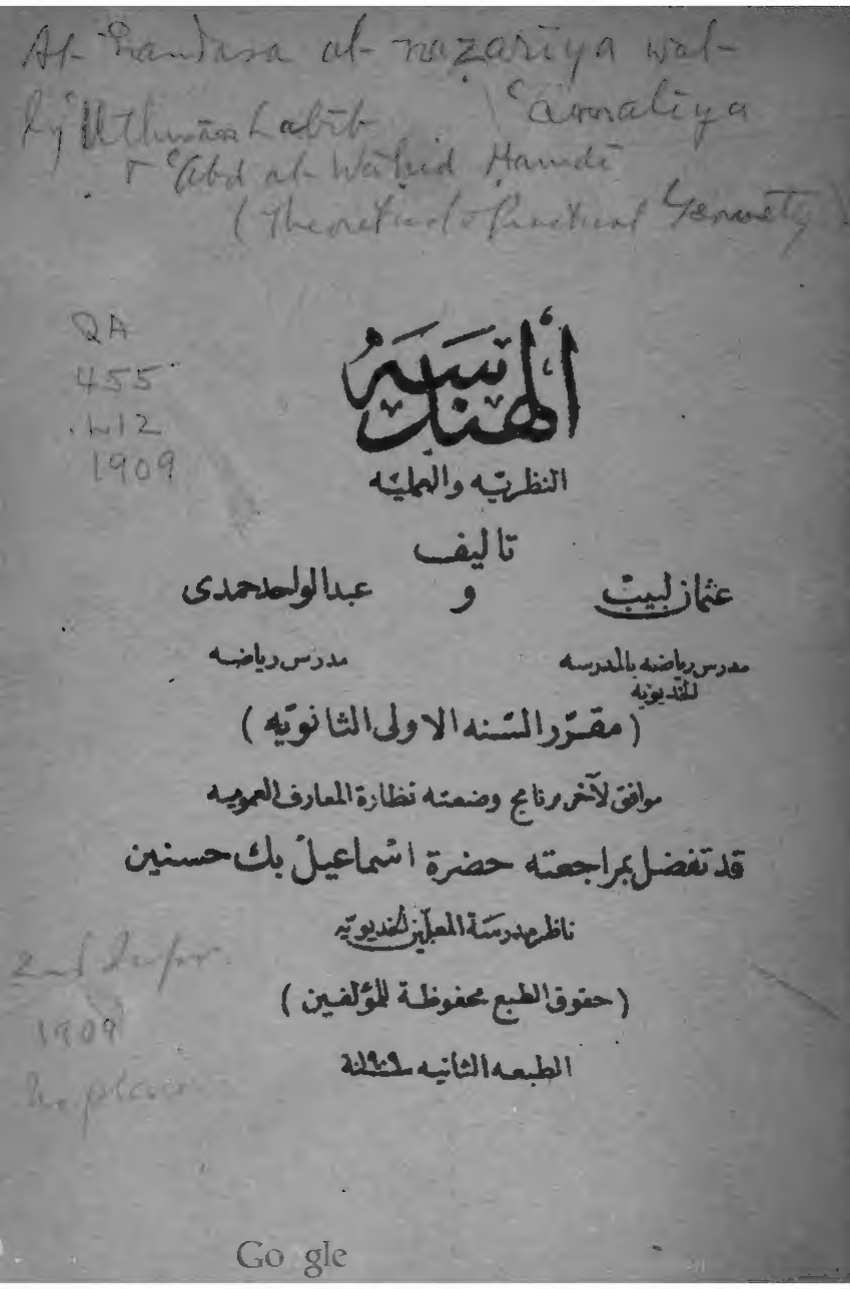 Al-handasa al-nazarīya wal-
ʿamalīya
by ʿUthmān Labīb
+ ʿAbd al-Wāḥid Ḥamdī
(Theoretical & Practical Geometry)
QA
455
.L12
1909
ألهندسه
النظريّه والعمليّه
تاليف
عثمان لبيب و عبدالواحد حمدى
مدرس رياضه بالمدرسه الخديويه
مدرس رياضه
(مقرّر السّنه الاولى الثانويّه)
موافق لآخر برنامج وضعته نظارة المعارف العموميه
قد تفضل بمراجعته حضرة اسماعيل بك حسنين
ناظر مدرسة المعلّمين الخديويّه
(حقوق الطبع محفوظة للمؤلفين)
الطبعه الثانيه سنة ١٩٠٩
2nd
1909
No place
Go gle